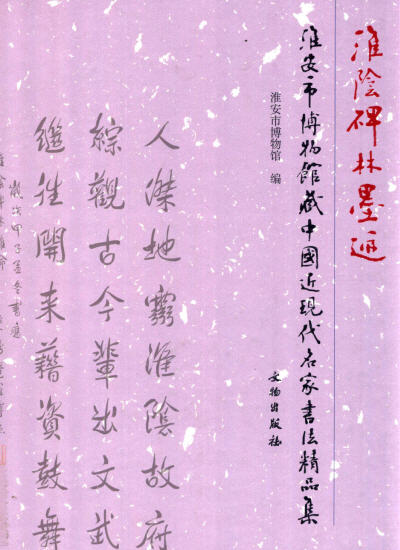 淮陰碑林墨迹
淮安市博物館藏中國近現代名家書法精品集
淮安市博物馆 编
文物出版社
人傑地靈淮陰故府
綜觀古今輩出文武
繼往開来藉資鼓舞